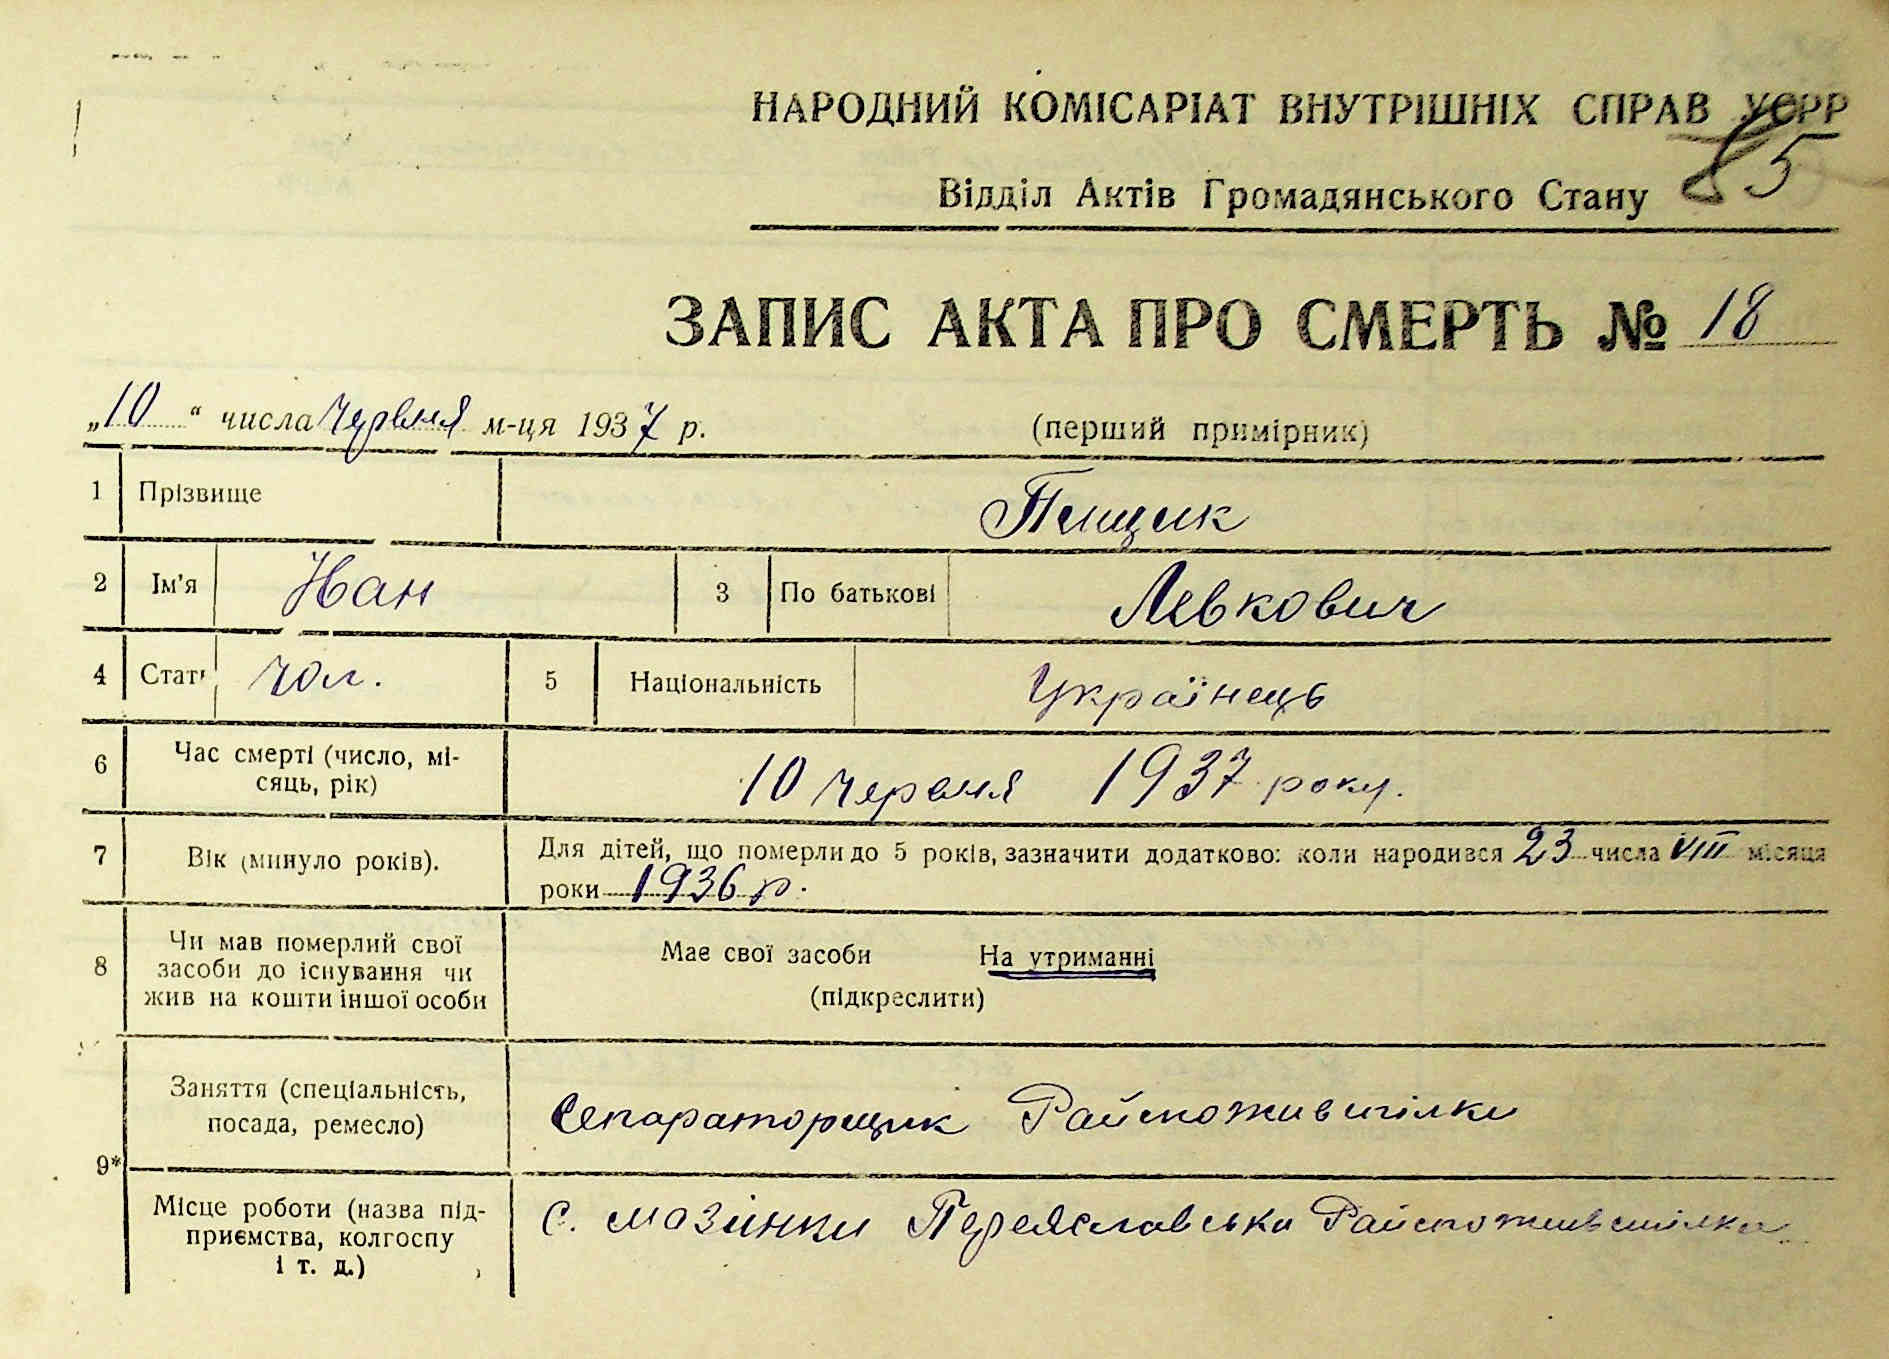 НАРОДНИЙ КОМІСАРІАТ ВНУТРІШНІХ СПРАВ УСРР
Відділ Актів Громадянського Стану
85
ЗАПИС АКТА ПРО СМЕРТЬ № 18
„10“ числа Червня м-ця 1937 р. (перший примірник)
1 Прізвище Пищик
2 Ім'я Іван 3 По батькові Левкович
4 Стать чол. 5 Національність Українець
6 Час смерті (число, мі-
сяць, рік) 10 червня 1937 року.
7 Вік (минуло років). Для дітей, що померли до 5 років, зазначити додатково: коли народився 23 числа VIII місяця
роки 1936 р.
8 Чи мав померлий свої
засоби до існування чи
жив на кошти іншої особи
Має свої засоби На утриманні
(підкреслити)
9* Заняття (спеціальність,
посада, ремесло) Сепараторщик Райспоживспілки
Місце роботи (назва під-
приємства, колгоспу
і т. д.)
с. Мазінки Переяславська Райспоживспілка